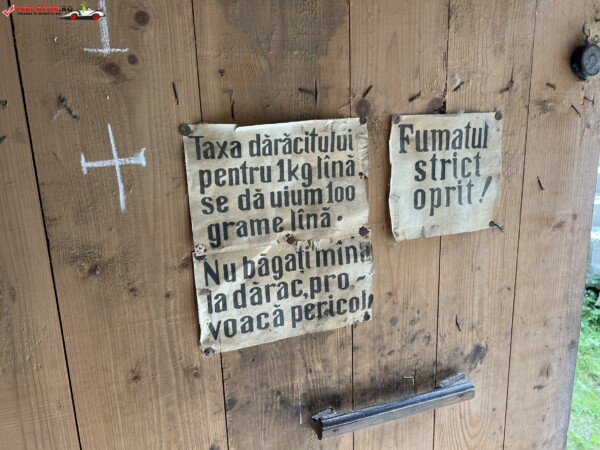 Taxa dărăcitului
pentru 1kg lînă,
se dă uium 100
grame lînă.
Nu băgați mîna
la dărac, pro-
voacă pericol!
Fumatul
strict
oprit!